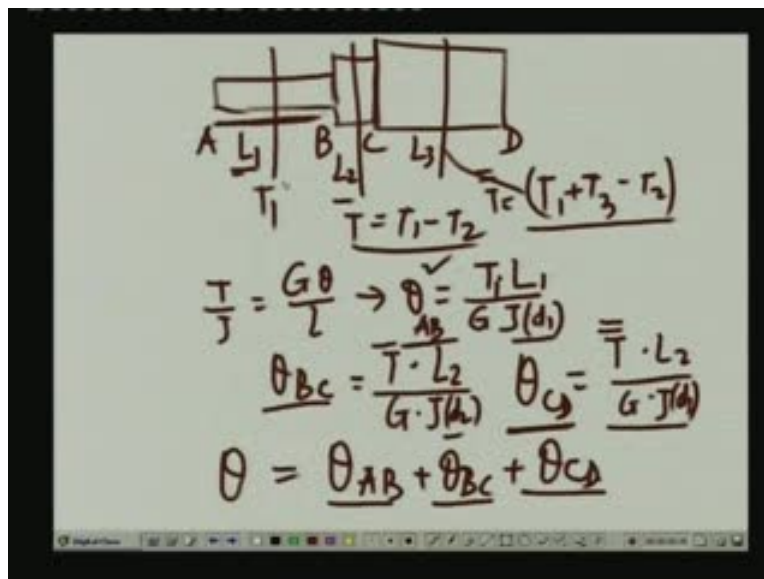 A L₁ B L₂ C L₃ D
T₁ T̄ = T₁ - T₂ Tc (T₁+T₃-T₂)
T/J = Gθ/L → θ_AB = T₁L₁/G J(d₁)
θ_BC = T̄·L₂/G·J(d₂) θ_CD = T̿·L₂/G·J(d₁)
θ = θ_AB + θ_BC + θ_CD